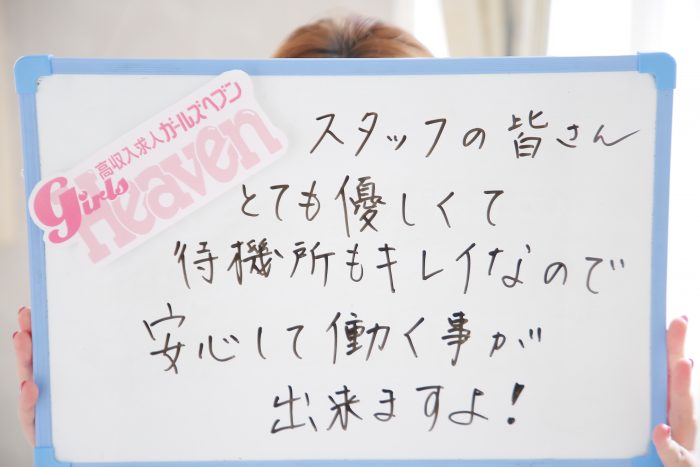 高収入求人ガールズヘブン
Girls
Heaven
スタッフの皆さん
とても優しくて
待機所もキレイなので
安心して働く事が
出来ますよ!